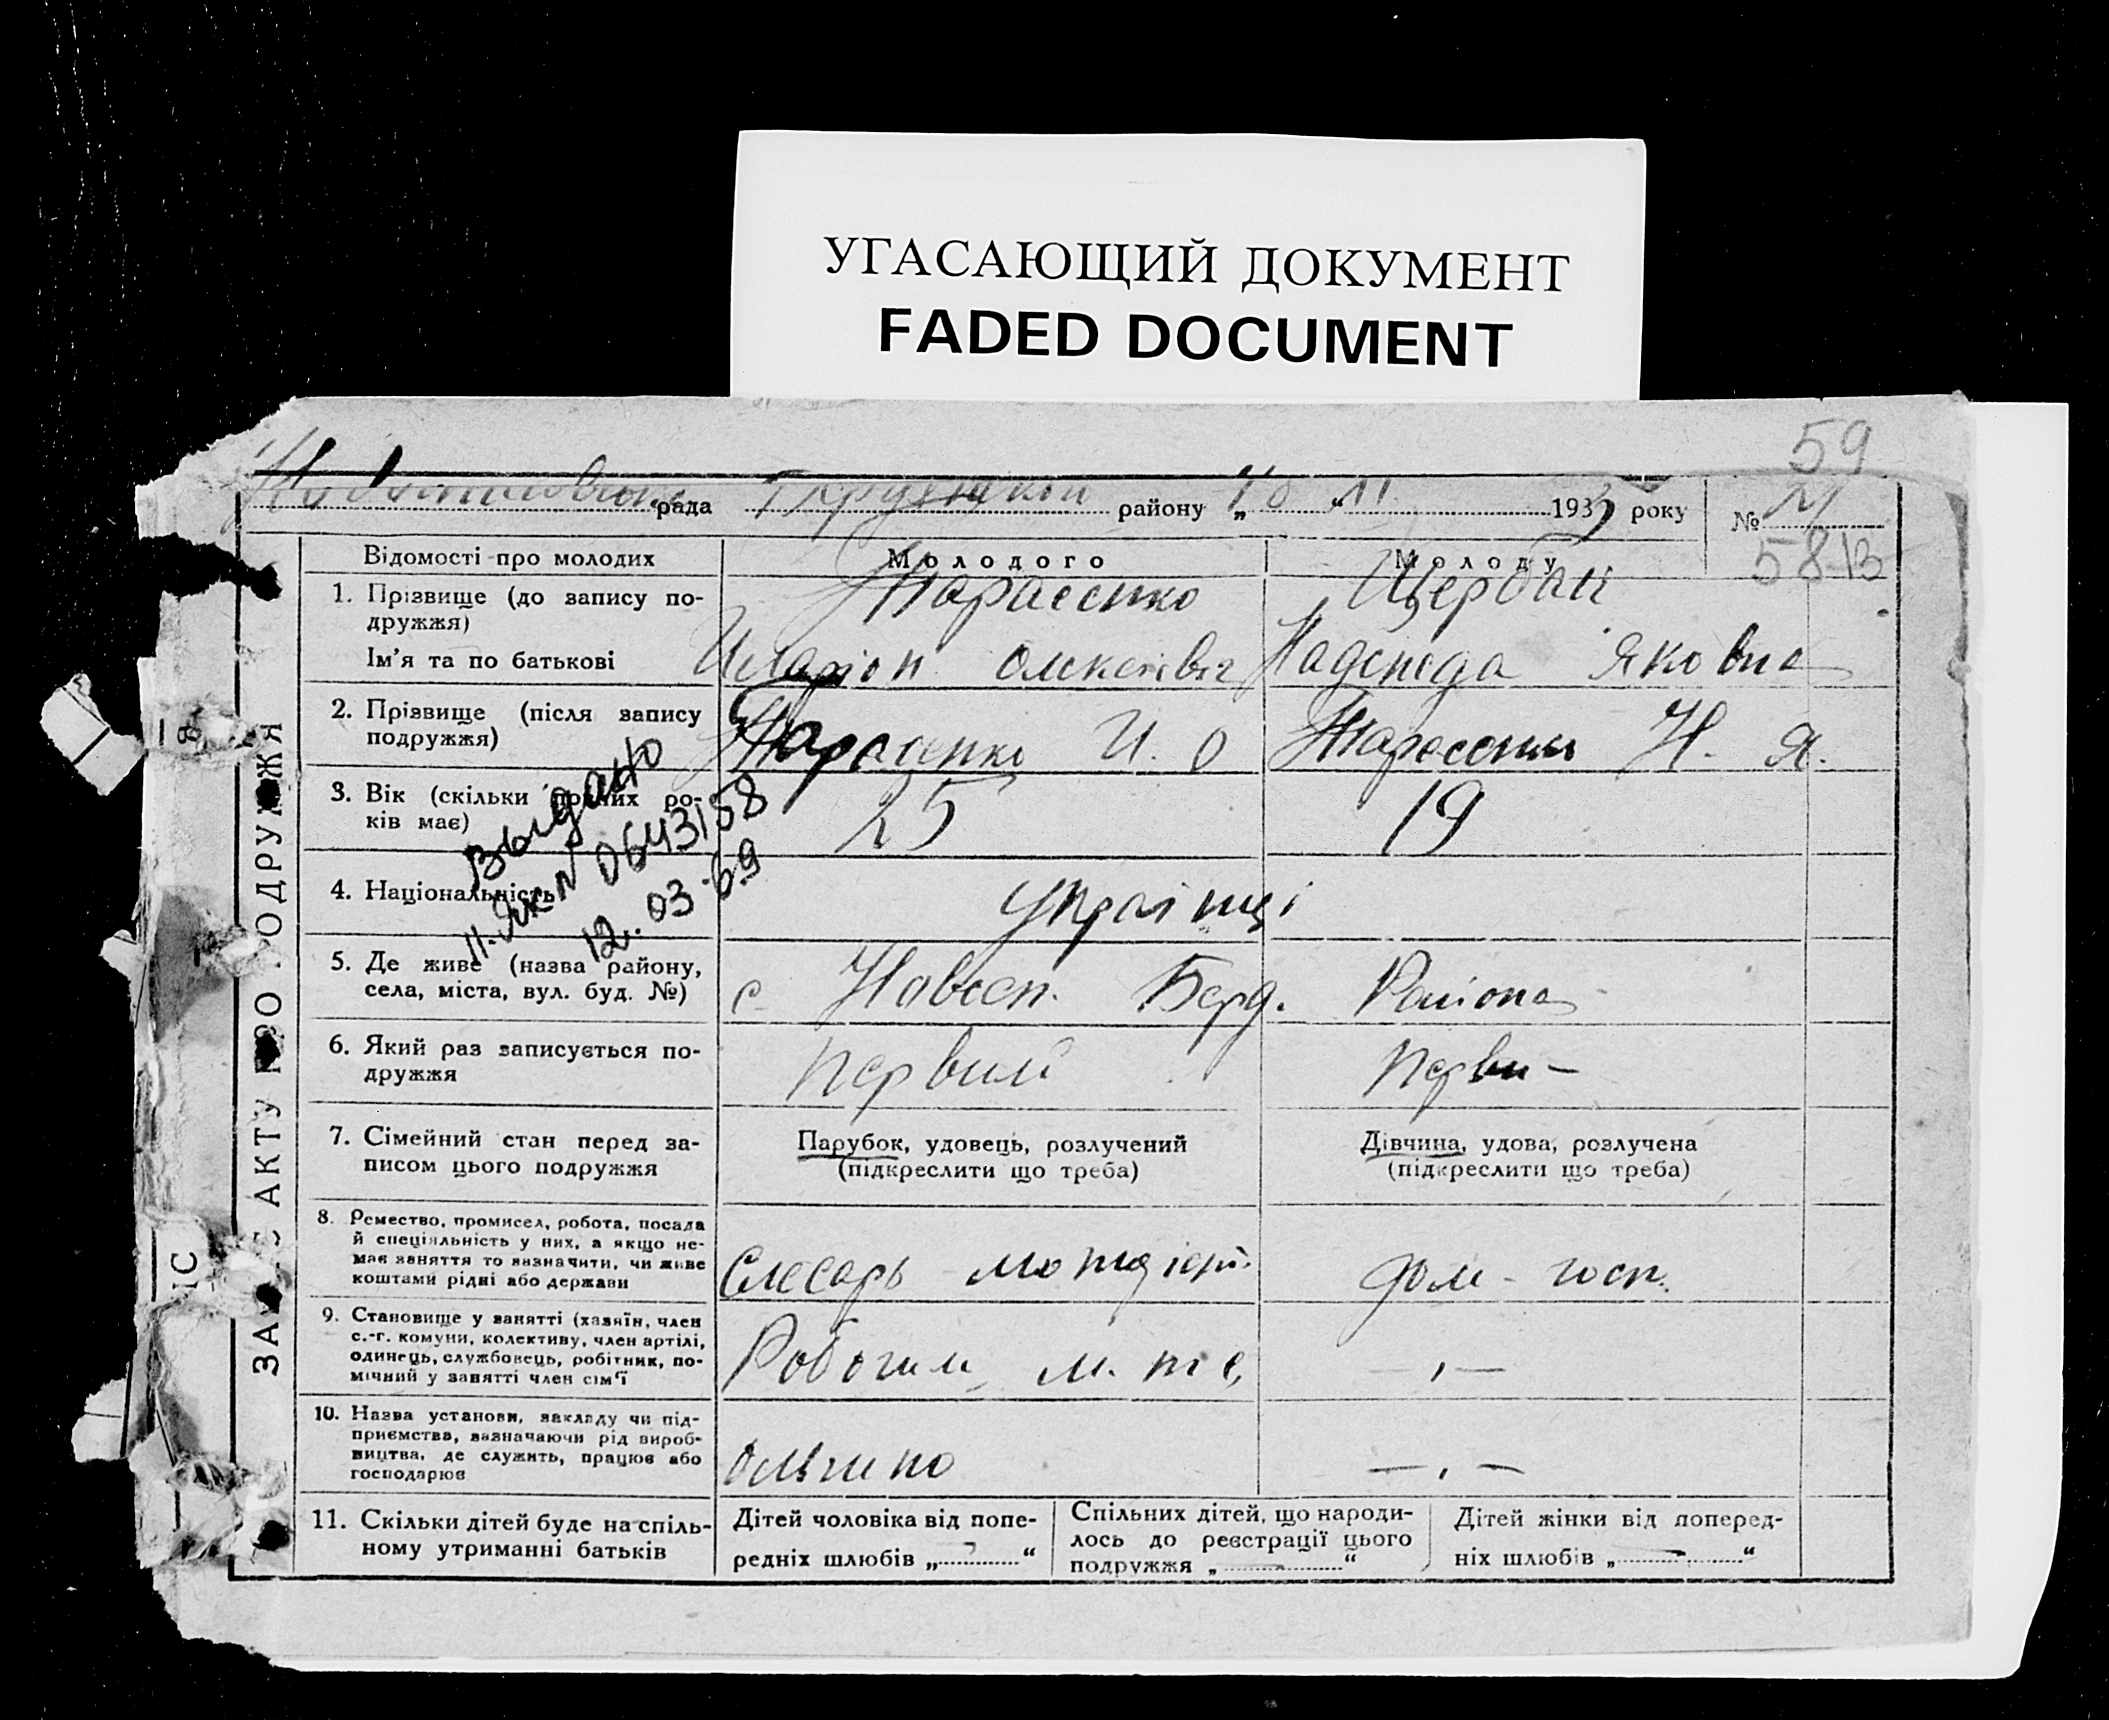 УГАСАЮЩИЙ ДОКУМЕНТ
FADED DOCUMENT
59
рада району 193 року №
58 13
ПОДРУЖЖЯ
Відомості про молодих Молодого Молоду
1. Прізвище (до запису по-
дружжя) Тарасенко Щербак
Ім'я та по батькові Иларіон Олексієвич Надежда Яковна
2. Прізвище (після запису
подружжя) Тарасенко И. О Тарасенко Н. Я.
3. Вік (скільки повних ро-
ків має) 25 19
Выдано
0643158
12.03.69
4. Національність Українці
5. Де живе (назва району,
села, міста, вул. буд. №) с Новосп. Берд. Района
6. Який раз записується по-
дружжя Первий Перви —
7. Сімейний стан перед за-
писом цього подружжя
Парубок, удовець, розлучений
(підкреслити що треба)
Дівчина, удова, розлучена
(підкреслити що треба)
8. Ремество, промисел, робота, посада
й спеціяльність у них, а якщо не-
має заняття то зазначити, чи живе
коштами рідні або держави
Слесарь дом-госп.
9. Становище у занятті (хазяїн, член
с.-г. комуни, колективу, член артілі,
одинець, службовець, робітник, по-
мічний у занятті член сім'ї
10. Назва установи, закладу чи під-
приємства, зазначаючи рід вироб-
ництва, де служить, працює або
господарює
11. Скільки дітей буде на спіль-
ному утриманні батьків
Дітей чоловіка від попе-
редніх шлюбів „ “
Спільних дітей, що народи-
лось до реєстрації цього
подружжя „ “
Дітей жінки від поперед-
ніх шлюбів „ “